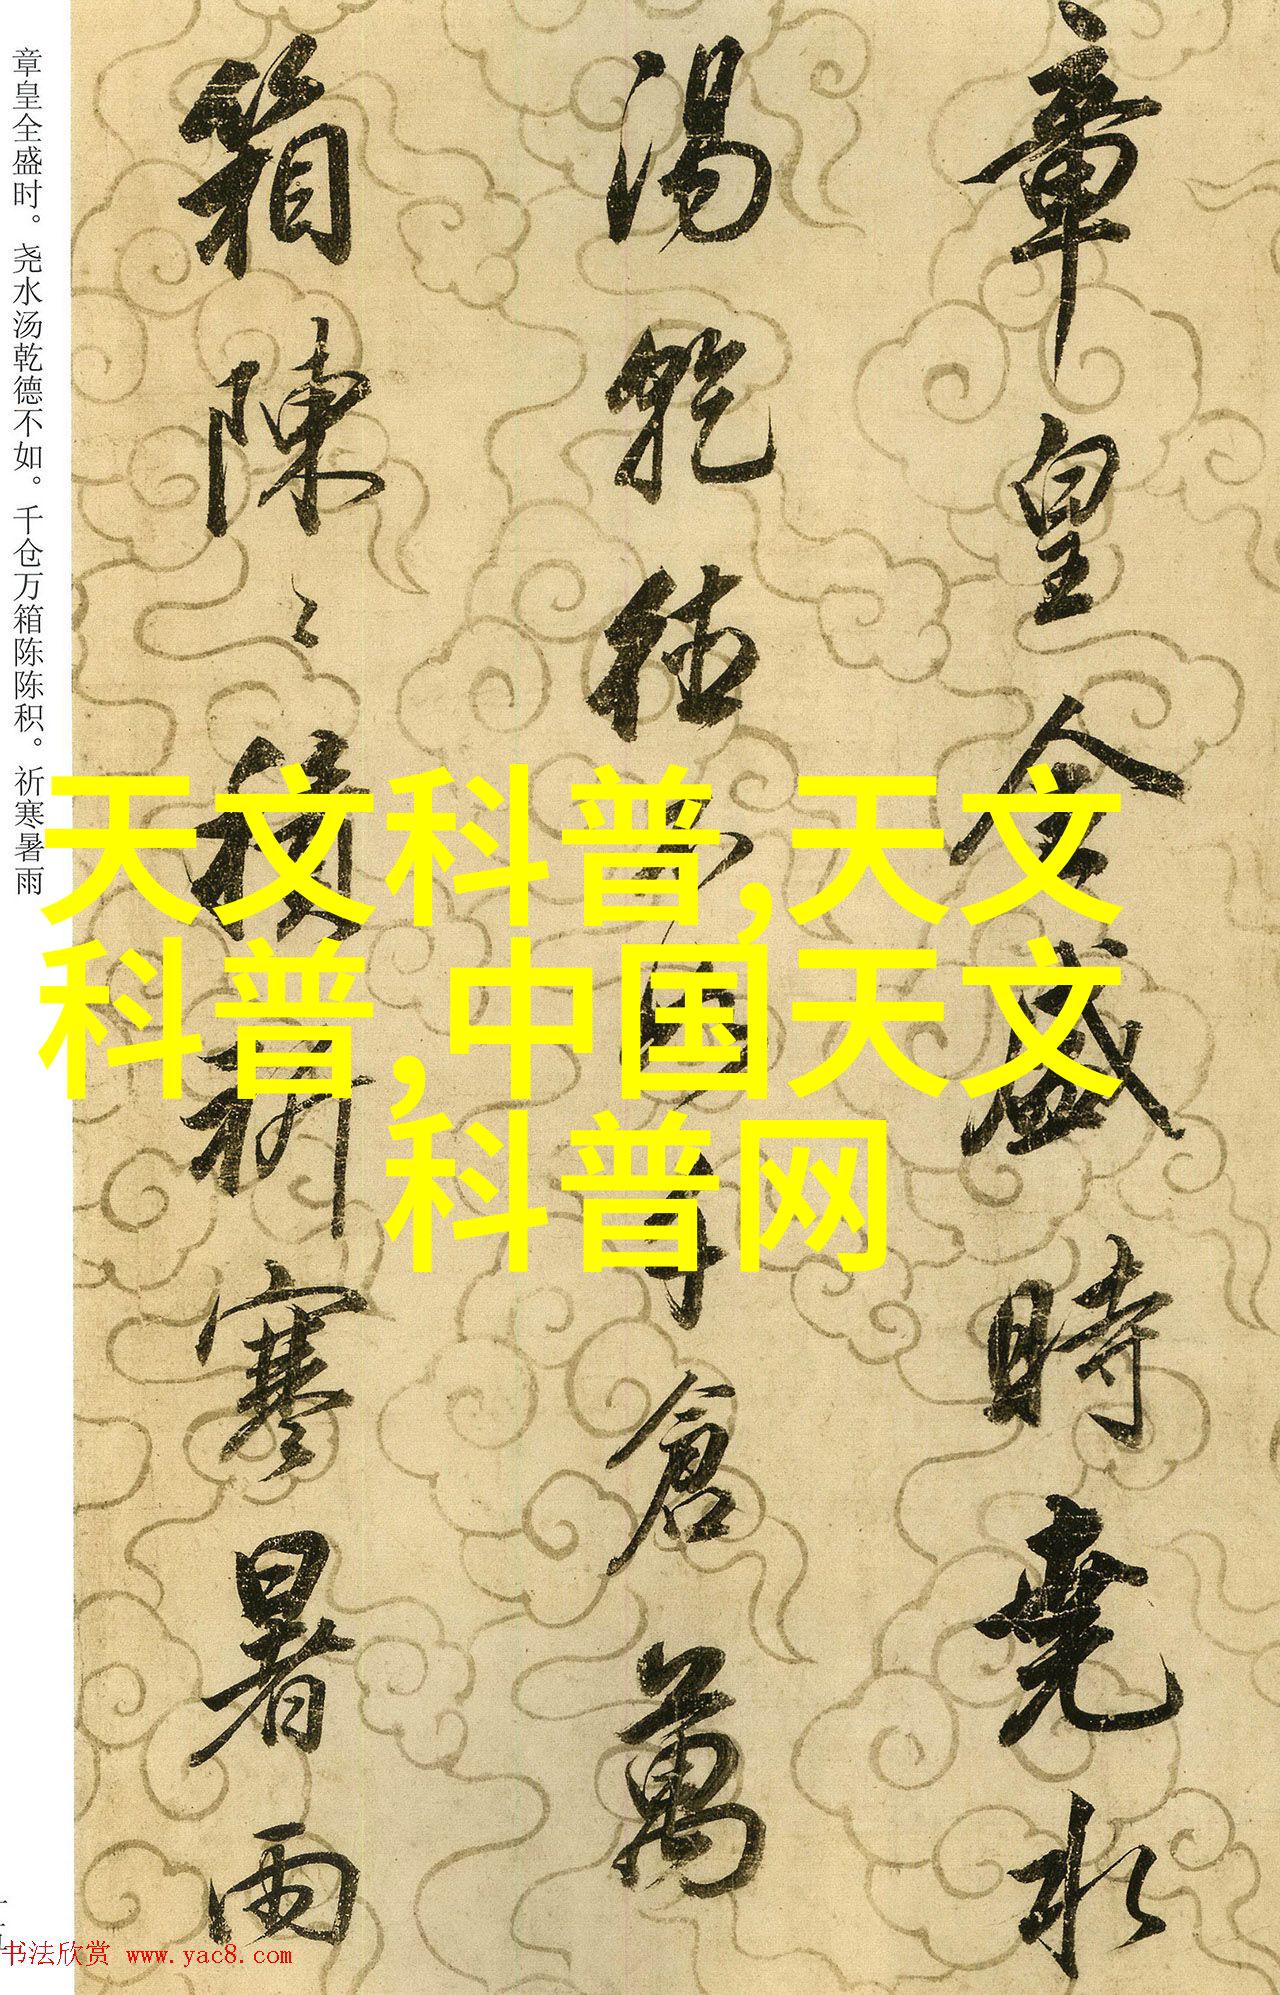 章皇全盛時堯水
湯乾德不如千倉萬
箱陳〻積祈寒暑雨
章皇全盛时。尧水汤乾德不如。千仓万箱陈陈积。祈寒暑雨
天文科普,天文
科普,中国天文
科普网
书法欣赏 www.yac8.com